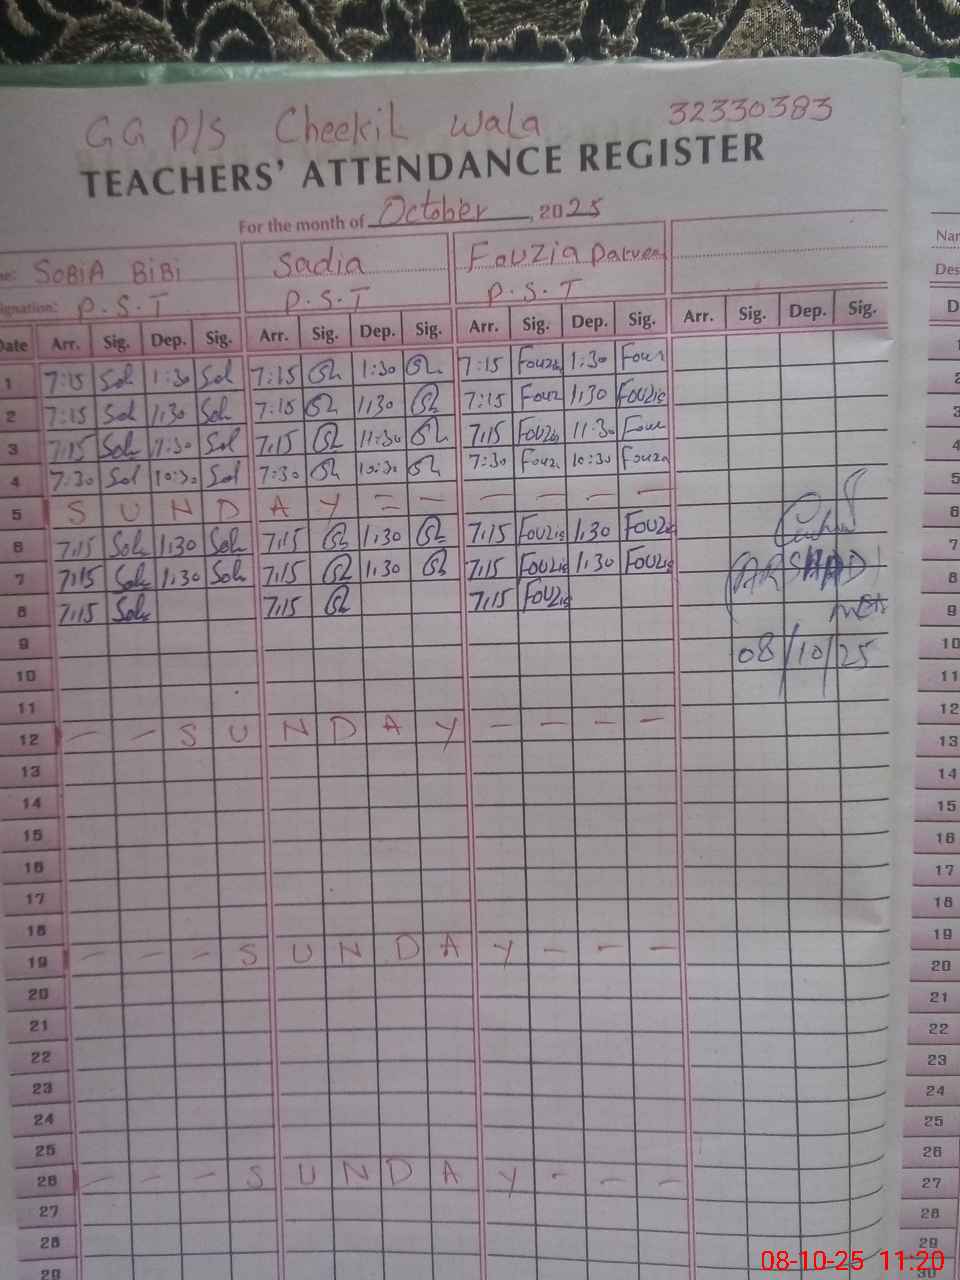 GG P/S Cheekil Wala 32330383
TEACHERS' ATTENDANCE REGISTER
For the month of October, 2025
SOBIA BiBi Sadia Fouzia Parveen Nar
P.S.T P.S.T P.S.T Des
Date Arr. Sig. Dep. Sig. Arr. Sig. Dep. Sig. Arr. Sig. Dep. Sig. Arr. Sig. Dep. Sig. D
1 7:15 Sol 1:30 Sol 7:15 1:30 7:15 Fouzia 1:30 Fouz 1
2 7:15 Sol 1:30 Sol 7:15 1:30 7:15 Fouz 1:30 Fouzia 2
3 7:15 Sol 11:30 Sol 7:15 11:30 7:15 Fouzia 11:30 Fouz 3
4 7:30 Sol 10:30 Sol 7:30 10:30 7:30 Fouz 10:30 Fouza 4
5 S U N D A Y - - - - - - 5
6 7:15 Sol 1:30 Sol 7:15 1:30 7:15 Fouzia 1:30 Fouzia 6
7 7:15 Sol 1:30 Sol 7:15 1:30 7:15 Fouzia 1:30 Fouzia ARSHAD 7
8 7:15 Sol 7:15 7:15 Fouzia 8
9 08/10/25 9
10 10
11 11
12 - - S U N D A Y - - - - 12
13 13
14 14
15 15
16 16
17 17
18 18
19 - - - S U N D A Y - - - 19
20 20
21 21
22 22
23 23
24 24
25 25
26 - - - S U N D A Y - - - 26
27 27
28 28
29 29
30
08-10-25 11:20